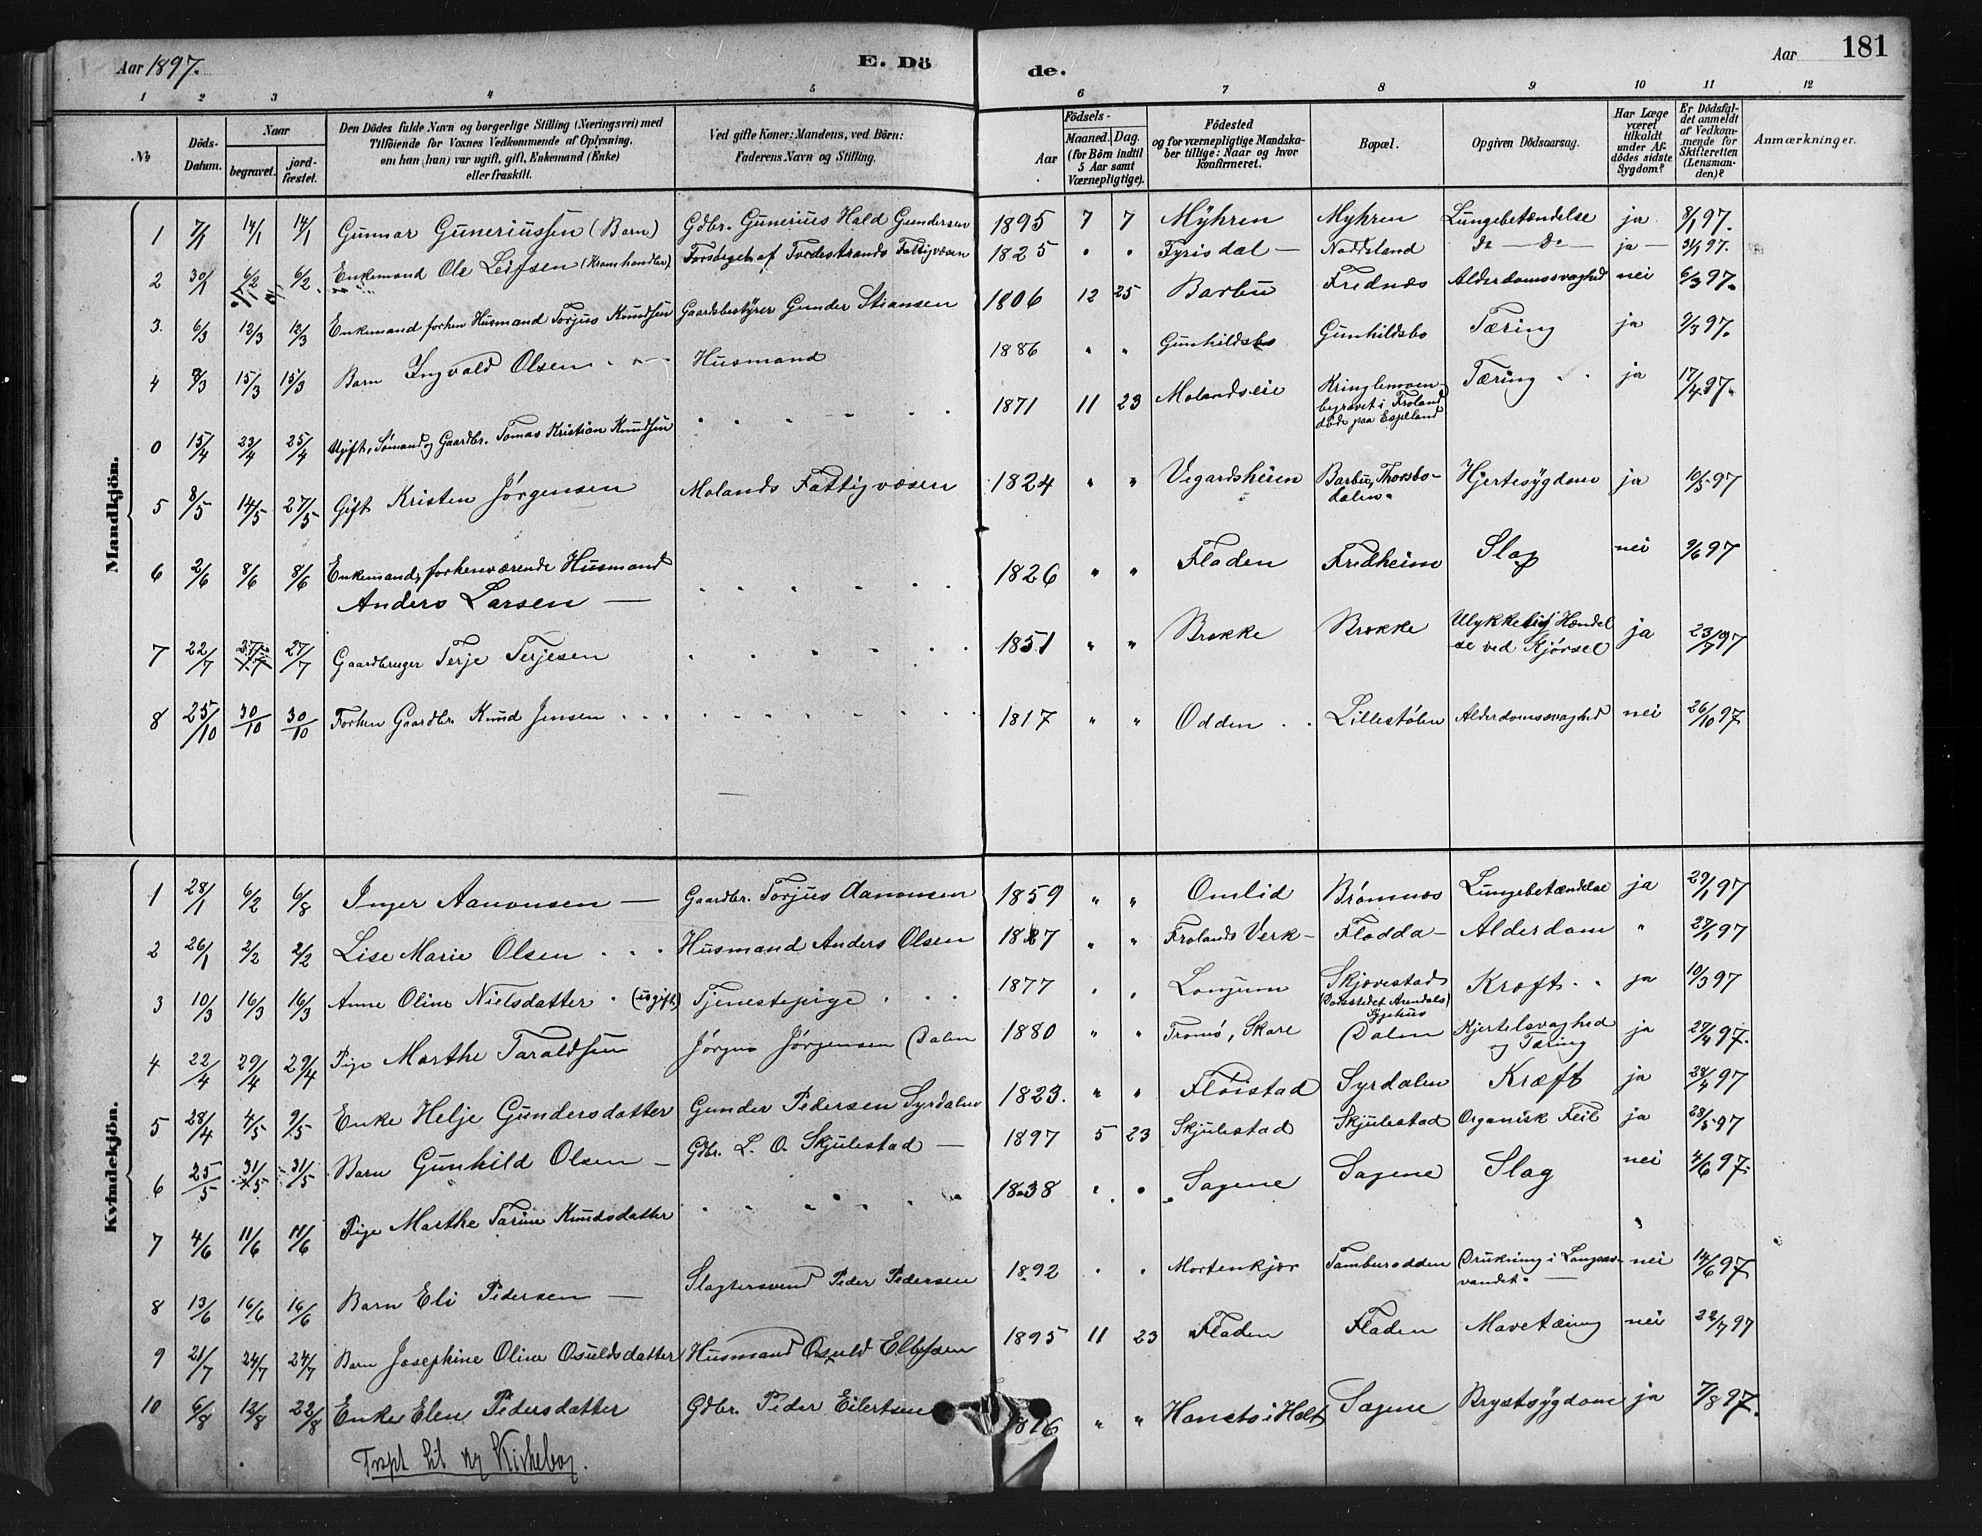 Aar 1897. E. Dö de. Aar 181
1 2 3 4 5 6 7 8 9 10 11 12
No
Döds-Datum.
Naar
begravet.
jord-fæstet.
Den Dödes fulde Navn og borgerlige Stilling (Næringsvei) med
Tilföiende for Voxnes Vedkommende af Oplysning,
om han (hun) var ugift, gift, Enkemand (Enke)
eller fraskilt.
Ved gifte Koner: Mandens, ved Börn:
Faderens Navn og Stilling.
Födsels-
Aar
Maaned. Dag.
(for Börn indtil
5 Aar samt
Værnepligtige).
Födested
og for værnepligtige Mandska-
ber tillige: Naar og hvor
konfirmeret.
Bopæl.
Opgiven Dödsaarsag.
Har Læge
været
tilkaldt
under Af-
dödes sidste
Sygdom?
Er Dödsfal-
det anmeldt
af Vedkom-
mende for
Skifteretten
(Lensman-
den)?
Anmærkninger.
Mandkjön.
1 7/1 14/1 14/1 Gunnar Guneriussen (Barn) Gdbr. Gunerius Hald Gundersen 1895 7 7 Myhren Myhren Lungebetændelse ja 8/1 97.
2 30/1 6/2 6/2 Enkemand Ole Leifsen (Kramhandler) Forsørget af Tvedestrands Fattigvæsen 1825 " " Fyrisdal — Noddeland Do — Do — ja — 31/1 97.
3. 6/3 12/3 12/3 Enkemand forhen Husmand Torjus Knudsen Gaardsbestyrer Gunder Stiansen 1806 12 25 Barbu Frednæs Alderdomssvaghed nei 6/3 97.
4 8/3 15/3 15/3 Barn Ingvald Olsen Husmand 1886 " " Gunhildsbo Gunhildsbo Tæring ja 9/3 97.
0 15/4 23/4 25/4 Ugift, Sømand og Gaardbr. Tomas Kristian Knudsen 1871 11 23 Molandseie Kringlemoen begravet i Froland døde paa Espeland Tæring ja 17/4 97.
5 8/5 14/5 27/5 Gift Kristen Jørgensen Molands Fattigvæsen 1824 " " Vegardsheien Barbu, Thorsbo-dalen. Hjertesygdom ja 10/5 97
6 2/6 8/6 8/6 Enkemand, forhenværende Husmand
Anders Larsen — 1826 " " Fladen Fredheim Slag nei 9/6 97
7 22/7 27/7 27/7 Gaardbruger Terje Terjesen 1851 " " Brekke Brekke Ulykkelig Hændel
se ved Kjørsel ja 23/7 97
8 25/10 30/10 30/10 Forhen Gaardbr. Knud Jensen 1817 " " Odden Lillestølen Alderdomssvaghed nei 26/10 97
Kvindekjön.
1 28/1 6/2 6/8 Inger Aanonsen — Gaardbr. Torjus Aanonsen 1859 " " Omlid Brømnes Lungebetændelse ja 29/1 97
2 26/1 2/2 2/2 Lise Marie Olsen Husmand Anders Olsen 1827 " " Frolands Verk — Flodda — Alderdom " 27/1 97
3 10/3 16/3 16/3 Anne Oline Nielsdatter (ugift) Tjenestepige 1877 " " Longum Skjævestad
(Dødsstedet Arendals
Sygehus Kræft ja 10/3 97
4 22/4 29/4 29/4 Pige Marthe Taraldsen Jørgen Jørgensen Dalen 1880 " " Tromø, Skare Dalen Kjertelsvaghed
og Tæring ja 27/4 97.
5 28/4 4/5 9/5 Enke Helje Gundersdatter Gunder Pedersen Syrdalen 1823. " " Fløistad Syrdalen Kræft ja 28/4 97
6 25/5 31/5 31/5 Barn Gunhild Olsen — Gdbr. L. O. Skjulestad — 1897 5 23 Skjulestad Skjulestad Organisk Feil ja 28/5 97
7 4/6 11/6 11/6 Pige Marthe Tarine Knudsdatter 1838 " " Sagene Sagene Slag nei 4/6 97.
8 13/6 16/6 16/6 Barn Eli Pedersen — Slagtersvend Peder Pedersen 1892 " " Mortenkjær Tamburodden Drukning i Langsæ-
vandet. — nei 14/6 97
9 21/7 24/7 24/7 Barn Josephine Oline Osuldsdatter Husmand Osuld Ellefsen 1895 11 23 Fladen Fladen Mavetæring nei 22/7 97
10 6/8 12/8 22/8 Enke Elen Pedersdatter Gdbr. Peder Eilertsen 1816 " " Hansto i Holt Sagene Brystsygdom ja 7/8 97.
Trspt til ny Kirkebog.